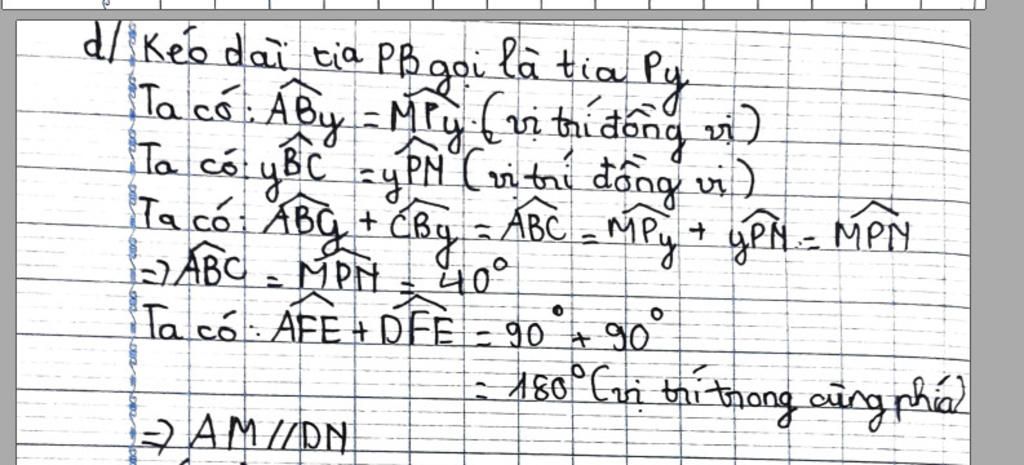 d/ Kéo dài tia PB gọi là tia Py
Ta có: \widehat{ABy} = \widehat{MPy} (vị trí đồng vị)
Ta có: \widehat{yBC} = \widehat{yPN} (vị trí đồng vị)
Ta có: \widehat{ABy} + \widehat{CBy} = \widehat{ABC} = \widehat{MPy} + \widehat{yPN} = \widehat{MPN}
=> \widehat{ABC} = \widehat{MPN} = 40°
Ta có: \widehat{AFE} + \widehat{DFE} = 90° + 90°
= 180° (vị trí trong cùng phía)
=> AM//DN